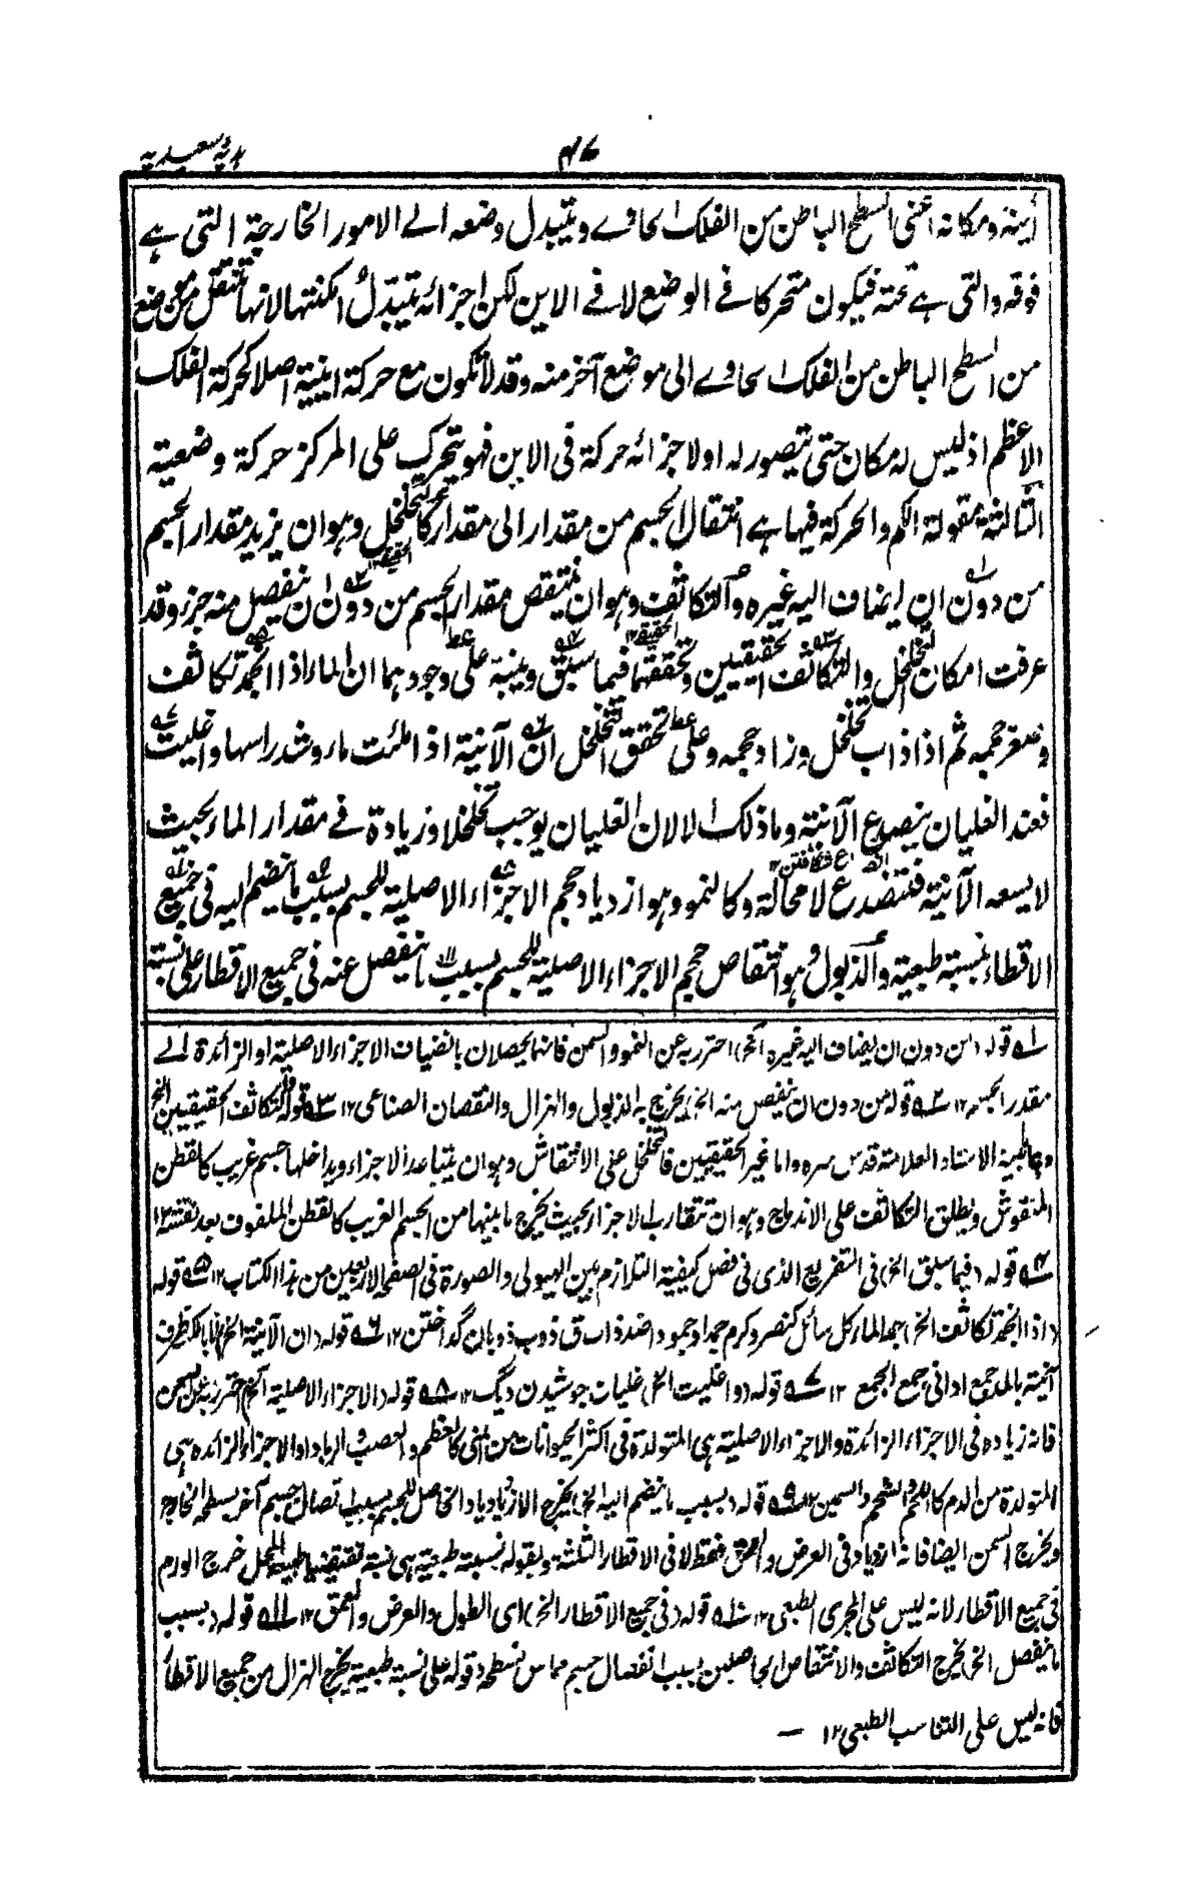 ہدیہ سعیدیہ
٤٧
أينه ومكانه اعنى السطح الباطن من الفلك الحاوے ويتبدل وضعه الے الامور الخارجة التى ہے
فوقه والتى ہے تحته فيكون متحركا فے الوضع لا فے الاين لكن اجزائه يتبدل امكنتها لانها تنتقل من موضع
من السطح الباطن من الفلك الحاوے الى موضع آخر منه وقد لا تكون مع حركة اينية اصلا كحركة الفلك
الاعظم اذ ليس له مكان حتى يتصور له او لاجزائه حركة فى الاين فهو يتحرك على المركز حركة وضعية
الثالثة مقولة الكم والحركة فيها ہے انتقال الجسم من مقدار الى مقدار كالتخلخل وہو ان يزيد مقدار الجسم
من دون ان يضاف اليه غيره والتكاثف وہو ان ينتقص مقدار الجسم من دون ان ينفصل منه جزء وقد
عرفت امكان التخلخل والتكاثف الحقيقيين وتحققهما فيما سبق وينبه على وجودہما ان الماء اذا انجمد تكاثف
وصغر حجمه ثم اذا ذاب تخلخل وزاد حجمه وعلى تحقق التخلخل ان الآنية اذا ملئت ماء وشد راسها واغليت
فعند الغليان ينصدع الآنية وما ذلك الا لان الغليان يوجب تخلخلا وزيادة فے مقدار الماء بحيث
لا يسعه الآنية فتنصدع لا محالة وكالنمو وہو ازدياد حجم الاجزاء الاصلية للجسم بسبب ما ينضم اليه فى جميع
الاقطاء بنسبة طبعية والذبول وہو انتقاص حجم الاجزاء الاصلية للجسم بسبب ما ينفصل عنه فى جميع الاقطار على نسبة
١ قوله (من دون ان يضاف اليه غيره الخ) احترز به عن النمو والسمن فانهما يحصلان بانضياف الاجزاء الاصلية او الزائدة الے
مقدر الجسم ١٢ ٢ قوله من دون ان ينفصل منه الخ) يخرج به الذبول والهزال والنقصان الصناعى ١٢ ٣ قوله التكاثف الحقيقيين الخ
الاستاد العلامة قدس سره واما غير الحقيقيين فالتخلخل على الانتفاش وہو ان يتباعد الاجزاء ويداخلها جسم غريب كالقطن
المنفوش ويطلق التكاثف على الاندماج وہو ان تتقارب الاجزاء بحيث يخرج ما بينها من الجسم الغريب كالقطن الملفوف بعد نفشه ١٢
٤ قوله (فيما سبق الخ) فى التفريع الذى فى فصل كيفية التلازم بين الهيولى والصورة فى الصفحة الاربعين من ہذا الكتاب ١٢ ٥ قوله
(اذا انجمد تكاثف الخ) جمد الماء وكل سائل كنصر وكرم جمدا وجمودا ضد ذاب ق ذوب ذوبان گداختن ١٢ ٦ قوله (ان الآنية الخ)
آنية بالمد جمع اوانى جمع الجمع ١٢ ٧ قوله (واغليت الخ) غليان جوشيدن ديگ ١٢ ٨ قوله (الاجزاء الاصلية الخ) احترز به عن السمن
فانه زيادة فى الاجزاء الزائدة والاجزاء الاصلية ہى المتولدة فى اكثر الحيوانات من المنى كالعظم والعصب والرباط والاجزاء الزائدة ہى
المتولدة من الدم كاللحم والشحم والسمين ١٢ ٩ قوله (بسبب ما ينضم اليه الخ) يخرج الازدياد الحاصل للجسم بسبب اتصال جسم آخر بسطحه الخارج
ويخرج السمن ايضا فانه ازدياد فى العرض والعمق فقط لا فى الاقطار الثلثة وبقوله بنسبة طبعية ہى نسبة تقتضيها طبيعة المحل خرج الورم
فى جميع الاقطار لانه ليس على المجرى الطبعى ١٢ ١٠ قوله (فى جميع الاقطار الخ) اى الطول والعرض والعمق ١٢ ١١ قوله (بسبب
ما ينفصل الخ) يخرج التكاثف والانتقاص الحاصلين بسبب انفصال جسم مماس بسطحه وقوله على نسبة طبعية يخرج الهزال من جميع الاقطار
فانه ليس على التناسب الطبعى ١٢ —